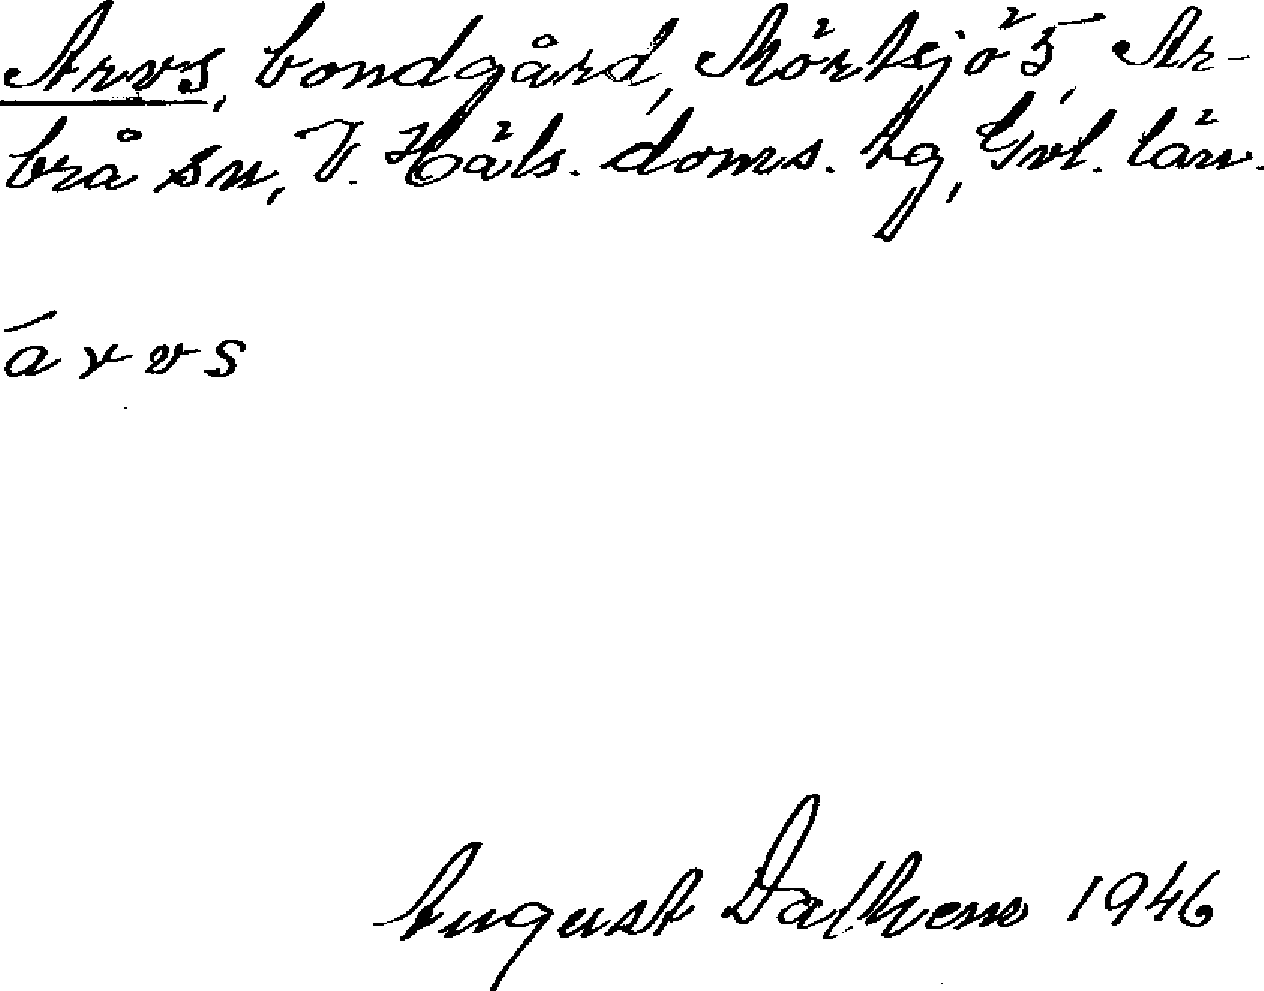 Arvs, bondgård, Mörtsjö 5, Ar-
brå sn, V. Häls. doms. tg, Gvl. län.
árvs
August Dalhem 1946